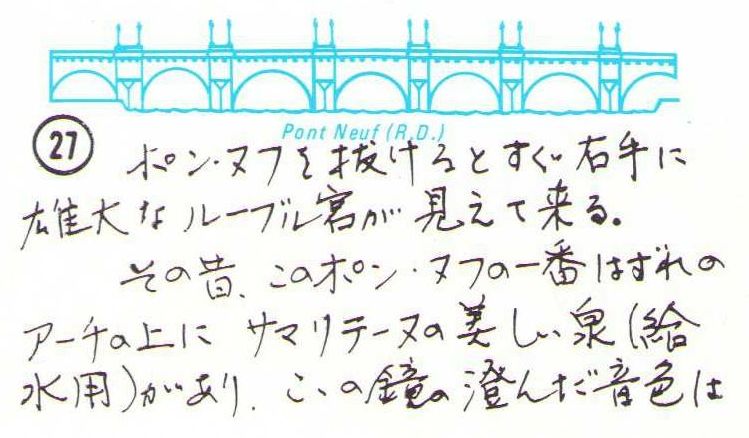 Pont Neuf (R.D.)
27 ポン・ヌフを抜けるとすぐ右手に
雄大なルーブル宮が見えて来る。
その昔、このポン・ヌフの一番はずれの
アーチの上に サマリテーヌの美しい泉(給
水用)があり、ここの鐘の澄んだ音色は